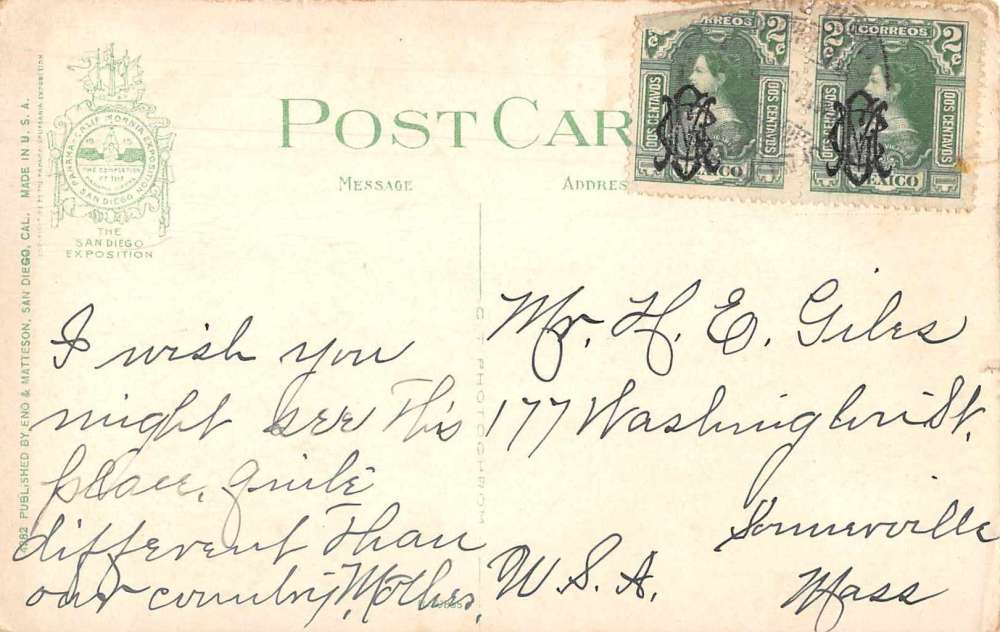 POST CAR
MESSAGE
ADDRES
CORREOS
2c 2c
DOS CENTAVOS DOS CENTAVOS
MEXICO
CORREOS
2c 2c
DOS CENTAVOS DOS CENTAVOS
MEXICO
PANAMA-CALIFORNIA EXPOSITION
SAN DIEGO
THE COMPLETION
OF THE
PANAMA CANAL
THE
SAN DIEGO
EXPOSITION
4282 PUBLISHED BY ENO & MATTESON, SAN DIEGO, CAL. MADE IN U. S. A.
C. T. PHOTOCHROM
I wish you
might see this
place, quite
different than
our country, Mother.
Mr. H. E. Giles
177 Washington St.
Sommerville
Mass
U. S. A.